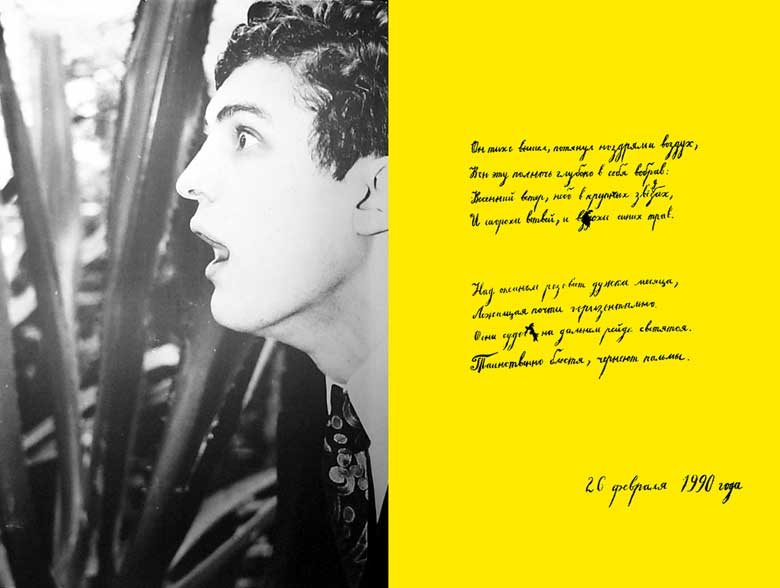 Он тихо вышел, потянул ноздрями воздух,
Всю эту полночь глубоко в себя вобрав:
Весенний ветер, небо в крупных звёздах,
И шорохи ветвей, и вздохи сонных трав.
Над океаном розоват дужка месяца,
Лежащая почти горизонтально.
Огни судов на дальнем рейде светятся.
Таинственно блестя, чернеют пальмы.
26 февраля 1990 года